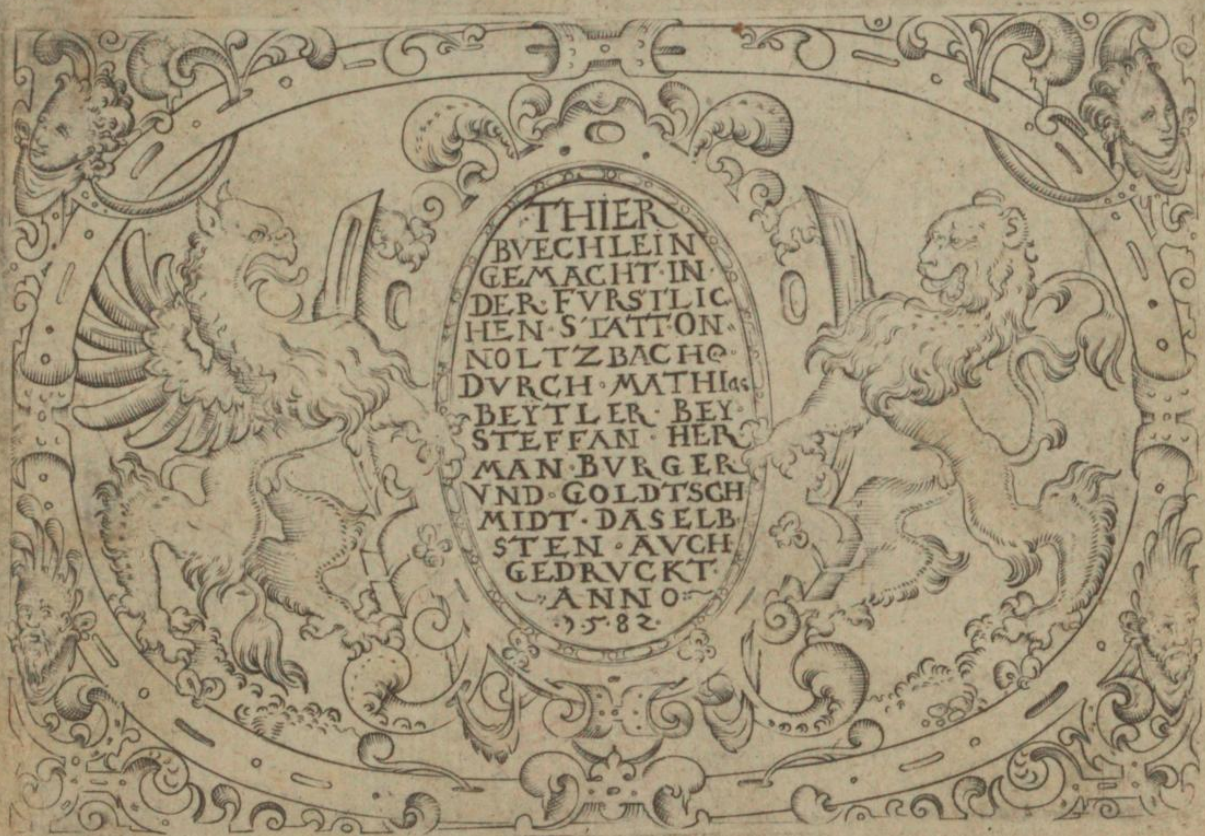 ·THIER
BVECHLEIN
GEMACHT·IN·
DER·FVRSTLIC
HEN·STATT·ON·
NOLTZBACH@·
DVRCH·MATHIas
·BEYTLER·BEY·
STEFFAN·HER
MAN·BVRGER
VND·GOLDTSCH
MIDT·DASELB·
STEN·AVCH
GEDRVCKT·
~·ANNO·~
·1582·